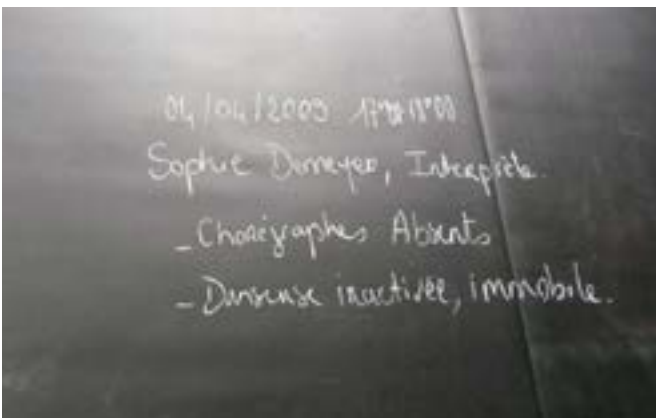 04/04/2009
Sophie Demeyer, Interprète.
- Chorégraphes Absents
- Danseuse inactivée, immobile.